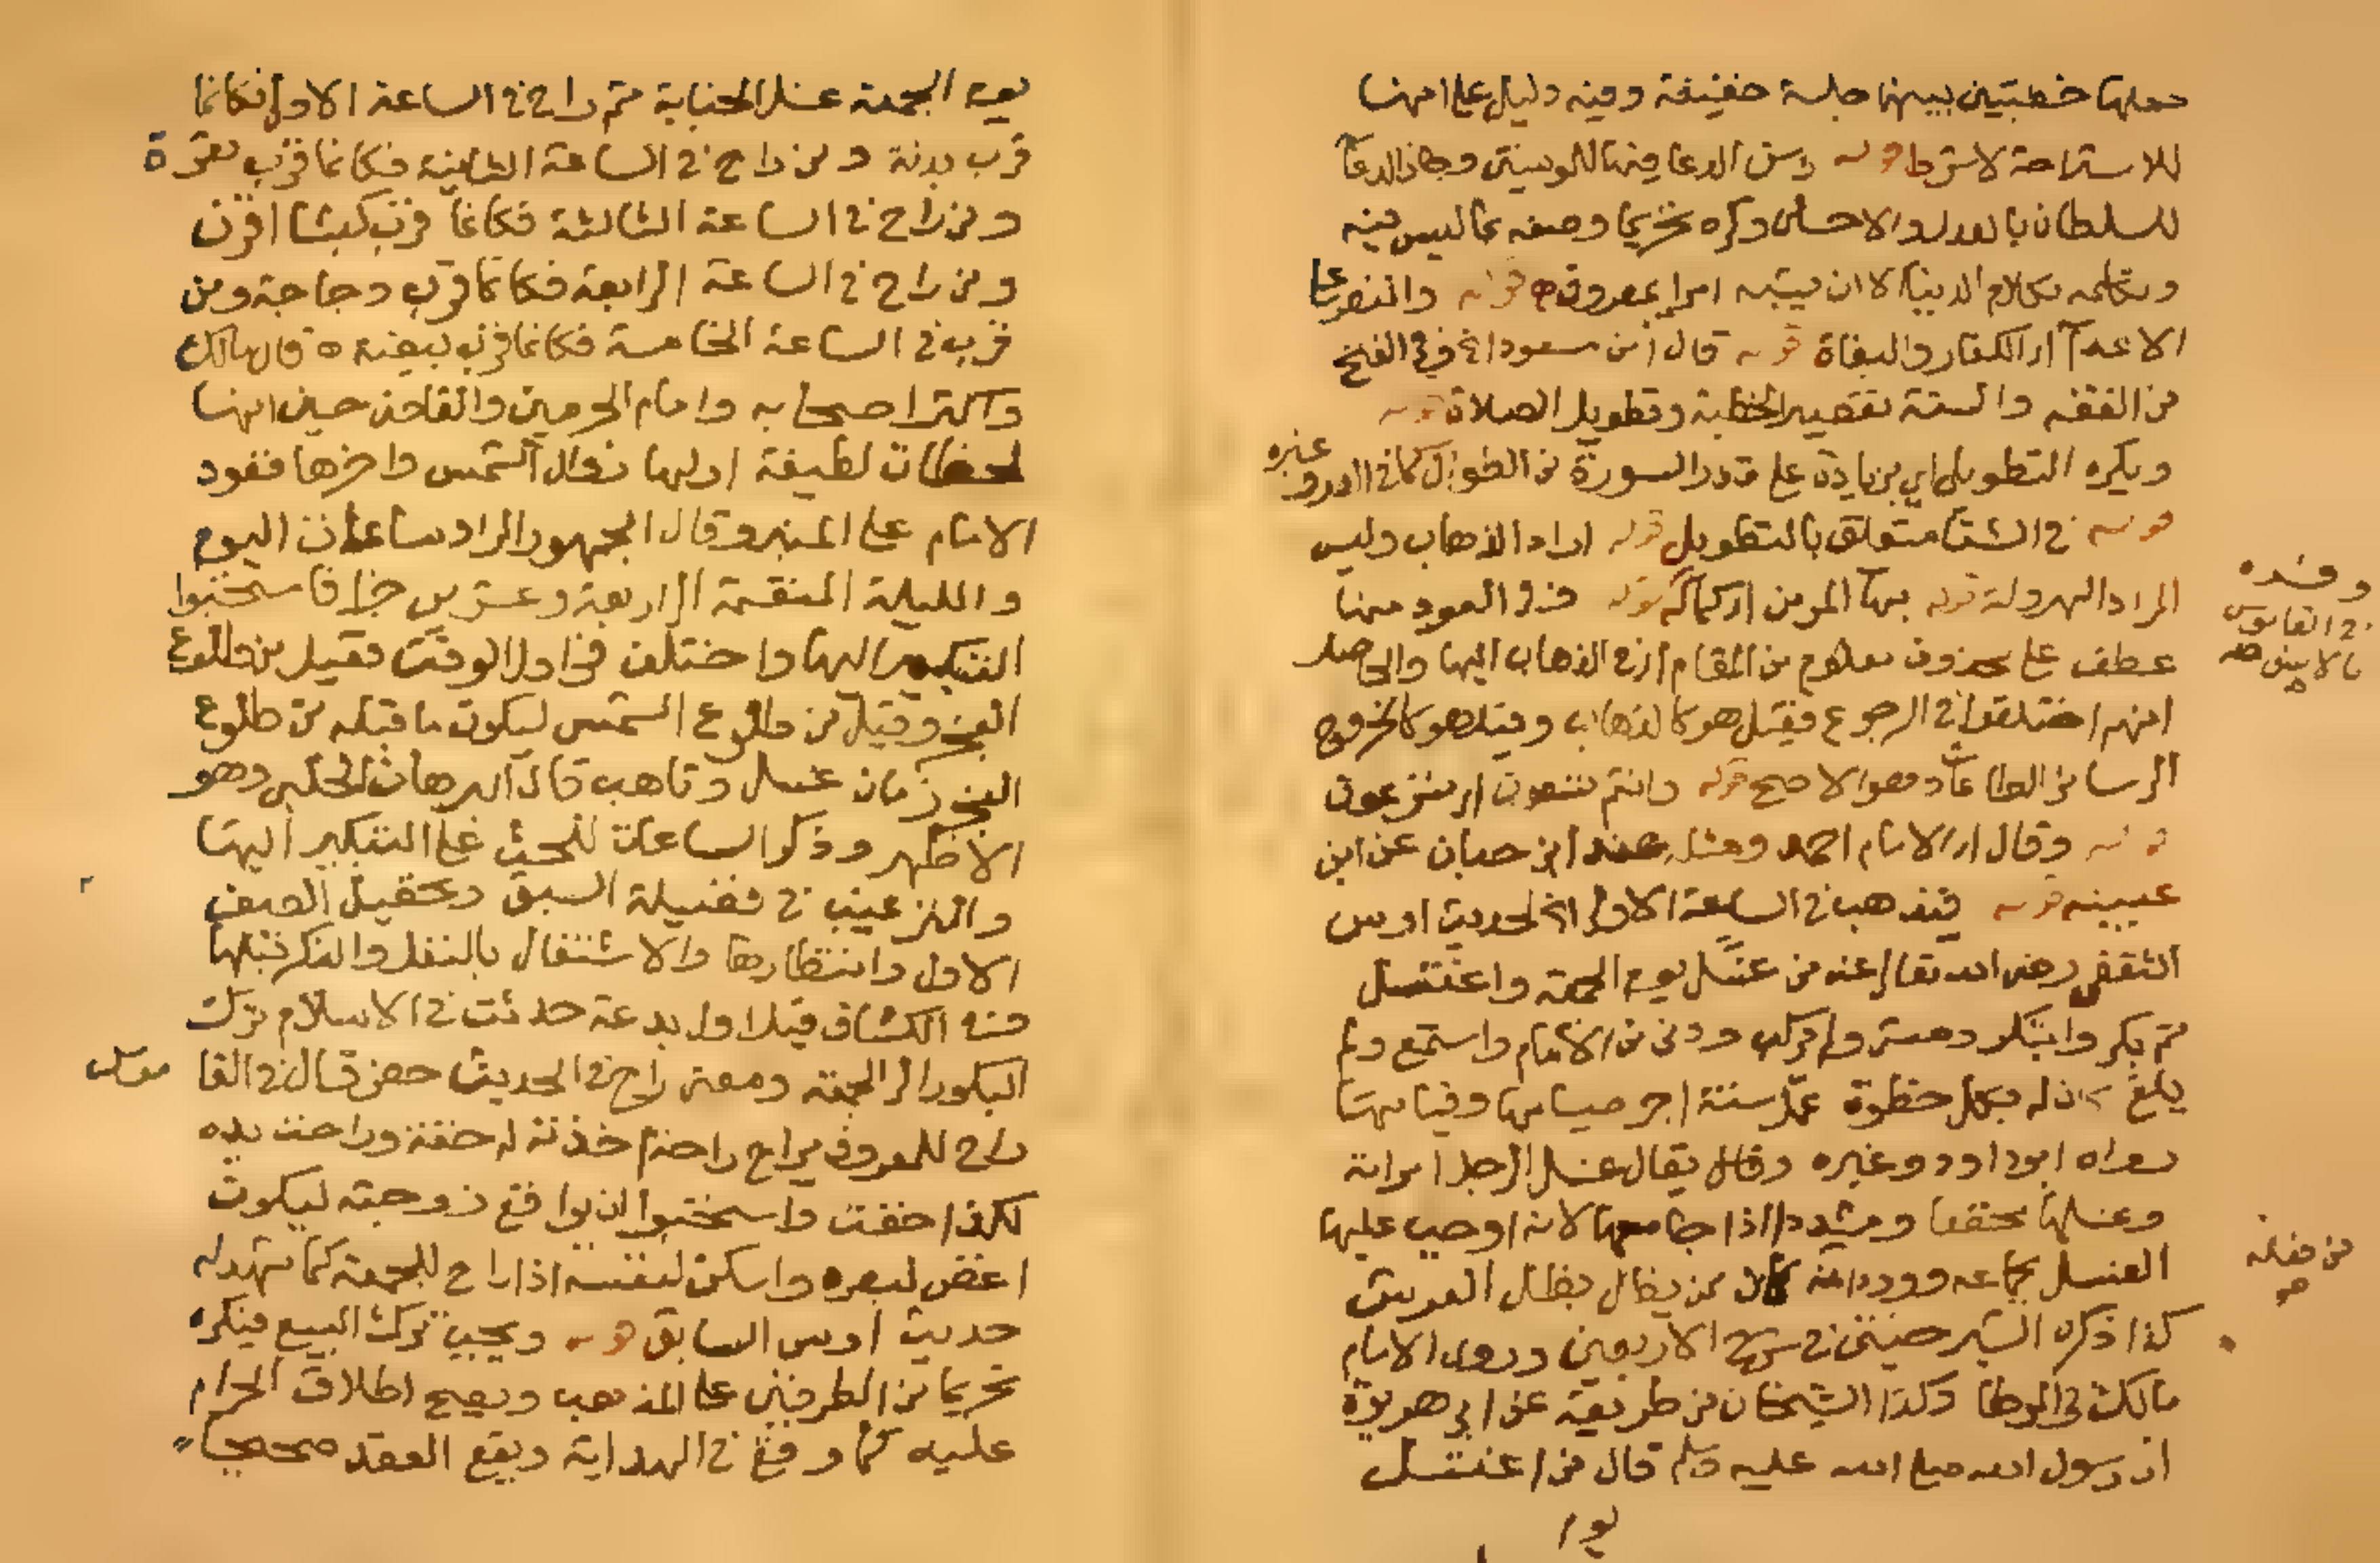 جعلها خطبتين بينهما جلسة خفيفة وفيه دليل على انها
للاستراحة لا شرط قوله وسن الدعا فيها للمومنين وجاز الدعا
للسلطان بالعدل والاحسان وكره تحريما وصفه بما ليس فيه
وتكلمه بكلام الدنيا الا ان يشبه امرا بمعروف قوله والنصر على
الاعداء اي الكفار والبغاة قوله قال ابن مسعود الخ وفي الفتح
من الفقه والسنة تقصير الخطبة وتطويل الصلاة قوله
ويكره التطويل اي بزيادة على قدر السورة من الطوال كما في الدرر وغيره
قوله في الشتا متعلق بالتطويل قوله اراد الذهاب وليس
المراد الهرولة قوله بها المومن اي كماله قوله العود منها
عطف على محذوف معلوم من المقام اي في الذهاب اليها والحاصل
انهم اختلفوا في الرجوع فقيل هو كالذهاب وقيل هو كالخروج
الى سائر الطاعات وهو الاصح قوله وانتم تسعون اي تسرعون
قوله وقال اي الامام احمد ومثله عند ابن حبان عن ابن
عيينه قوله فيذهب في الساعة الاولى الخ لحديث اوس
الثقفي رضي الله تعالى عنه من غسل يوم الجمعة واغتسل
ثم بكر وابتكر ومشى ولم يركب ودنى من الامام واستمع ولم
يلغ كان له بكل خطوة عمل سنة اجر صيامها وقيامها
رواه ابوداود وغيره وقال يقال غسل الرجل امراته
وغسلها مخففا ومشددا اذا جامعها لانه اوجب عليها
الغسل بجماعه وورد انه كان ممن يظل بظل العرش
كذا ذكره الشبرخيتي في شرح الاربعين وروى الامام
مالك في الموطا وكذا الشيخان من طريقه عن ابي هريرة
ان رسول الله صلى الله عليه وسلم قال من اغتسل
يوم
في القاموس
من فعله
يوم الجمعة غسل الجنابة ثم راح في الساعة الاولى فكانما
قرب بدنة ومن راح في الساعة الثانية فكانما قرب بقرة
ومن راح في الساعة الثالثة فكانما قرب كبشا اقرن
ومن راح في الساعة الرابعة فكانما قرب دجاجة ومن
قرب في الساعة الخامسة فكانما قرب بيضة ه قال مالك
واكثر اصحابه وامام الحرمين والقاضي حسين انها
لحظات لطيفة اولها زوال الشمس واخرها قعود
الامام على المنبر وقال الجمهور المراد ساعات اليوم
والليلة المنقسمة الى اربعة وعشرين جزا فاستحبوا
التبكير اليها واختلف في اول الوقت فقيل من طلوع
الفجر وقيل من طلوع الشمس ليكون ما قبله من طلوع
الفجر زمان غسل وتاهب قال البرهان الحلبي وهو
الاظهر وذكر الساعات للحث على التبكير اليها
والترغيب في فضيلة السبق وتحصيل الصف
الاول وانتظارها والاشتغال بالنفل والذكر قبلها
الكشاف قيل اول بدعة حدثت في الاسلام ترك
البكور الى الجمعة ومعنى راح في الحديث خف قال في القاموس
راح للمعروف يراح راحة اخذته له خفة وراحت يده
لكذا خفت واستحبوا ان يواقع زوجته ليكون
اغض لبصره واسكن لنفسه اذا راح للجمعة كما شهد له
حديث اوس السابق قوله ويجب ترك البيع فيكره
تحريما من الطرفين على المذهب ويصح اطلاق الحرام
عليه كما وقع في الهداية ويقع العقد صحيحا